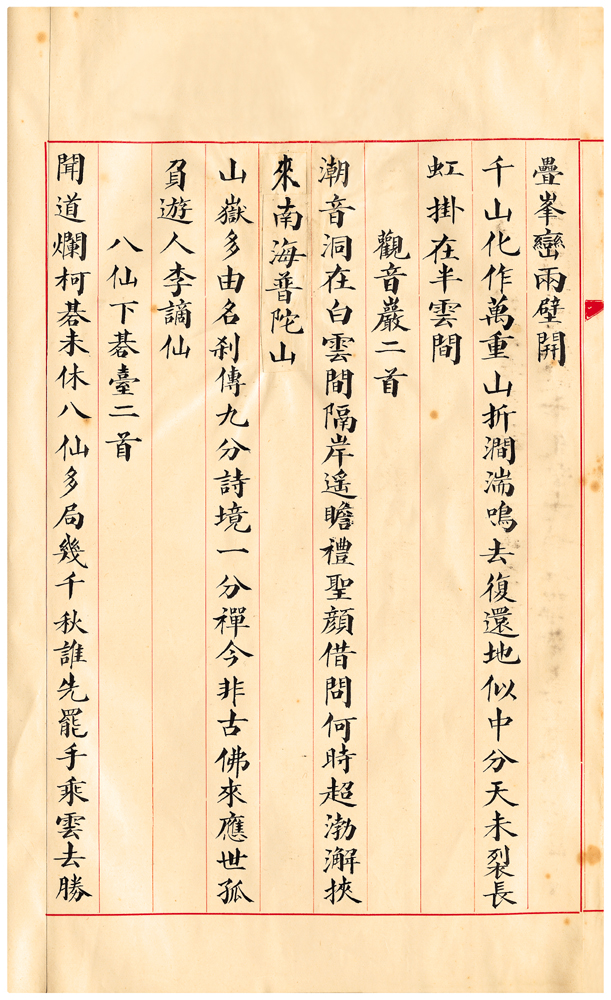 疊峯巒兩壁開
千山化作萬重山折澗湍鳴去復還地似中分天未裂長
虹掛在半雲間
觀音巖二首
潮音洞在白雲間隔岸遙瞻禮聖顏借問何時超渤澥挾
來南海普陀山
山嶽多由名刹傳九分詩境一分禪今非古佛來應世孤
負遊人李謫仙
八仙下碁臺二首
聞道爛柯碁未休八仙多局幾千秋誰先罷手乘雲去勝